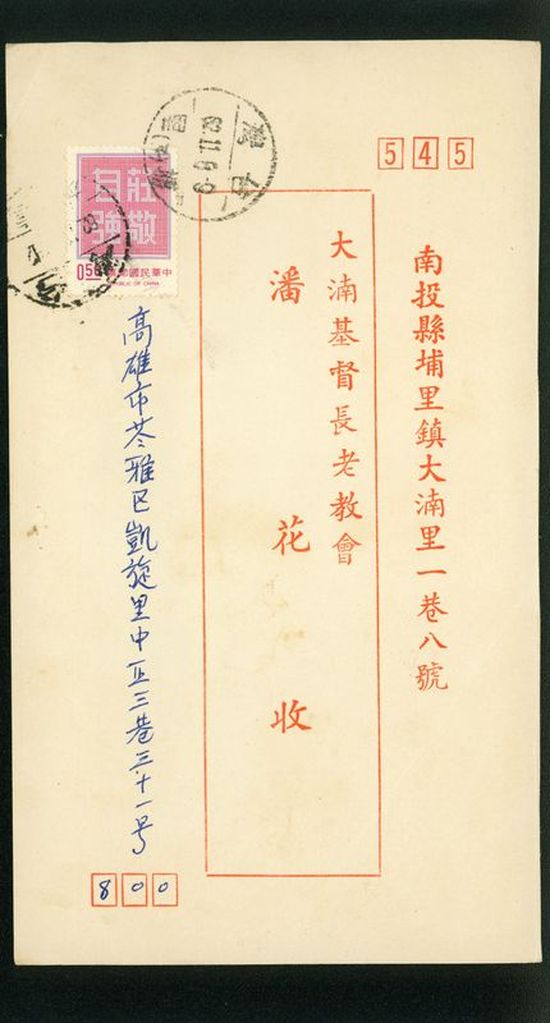 545
南投縣埔里鎮大湳里一巷八號
大湳基督長老教會
潘花收
莊敬自強
中華民國郵票
REPUBLIC OF CHINA
0.50
高雄市苓雅區凱旋里中正三巷三十一号
800